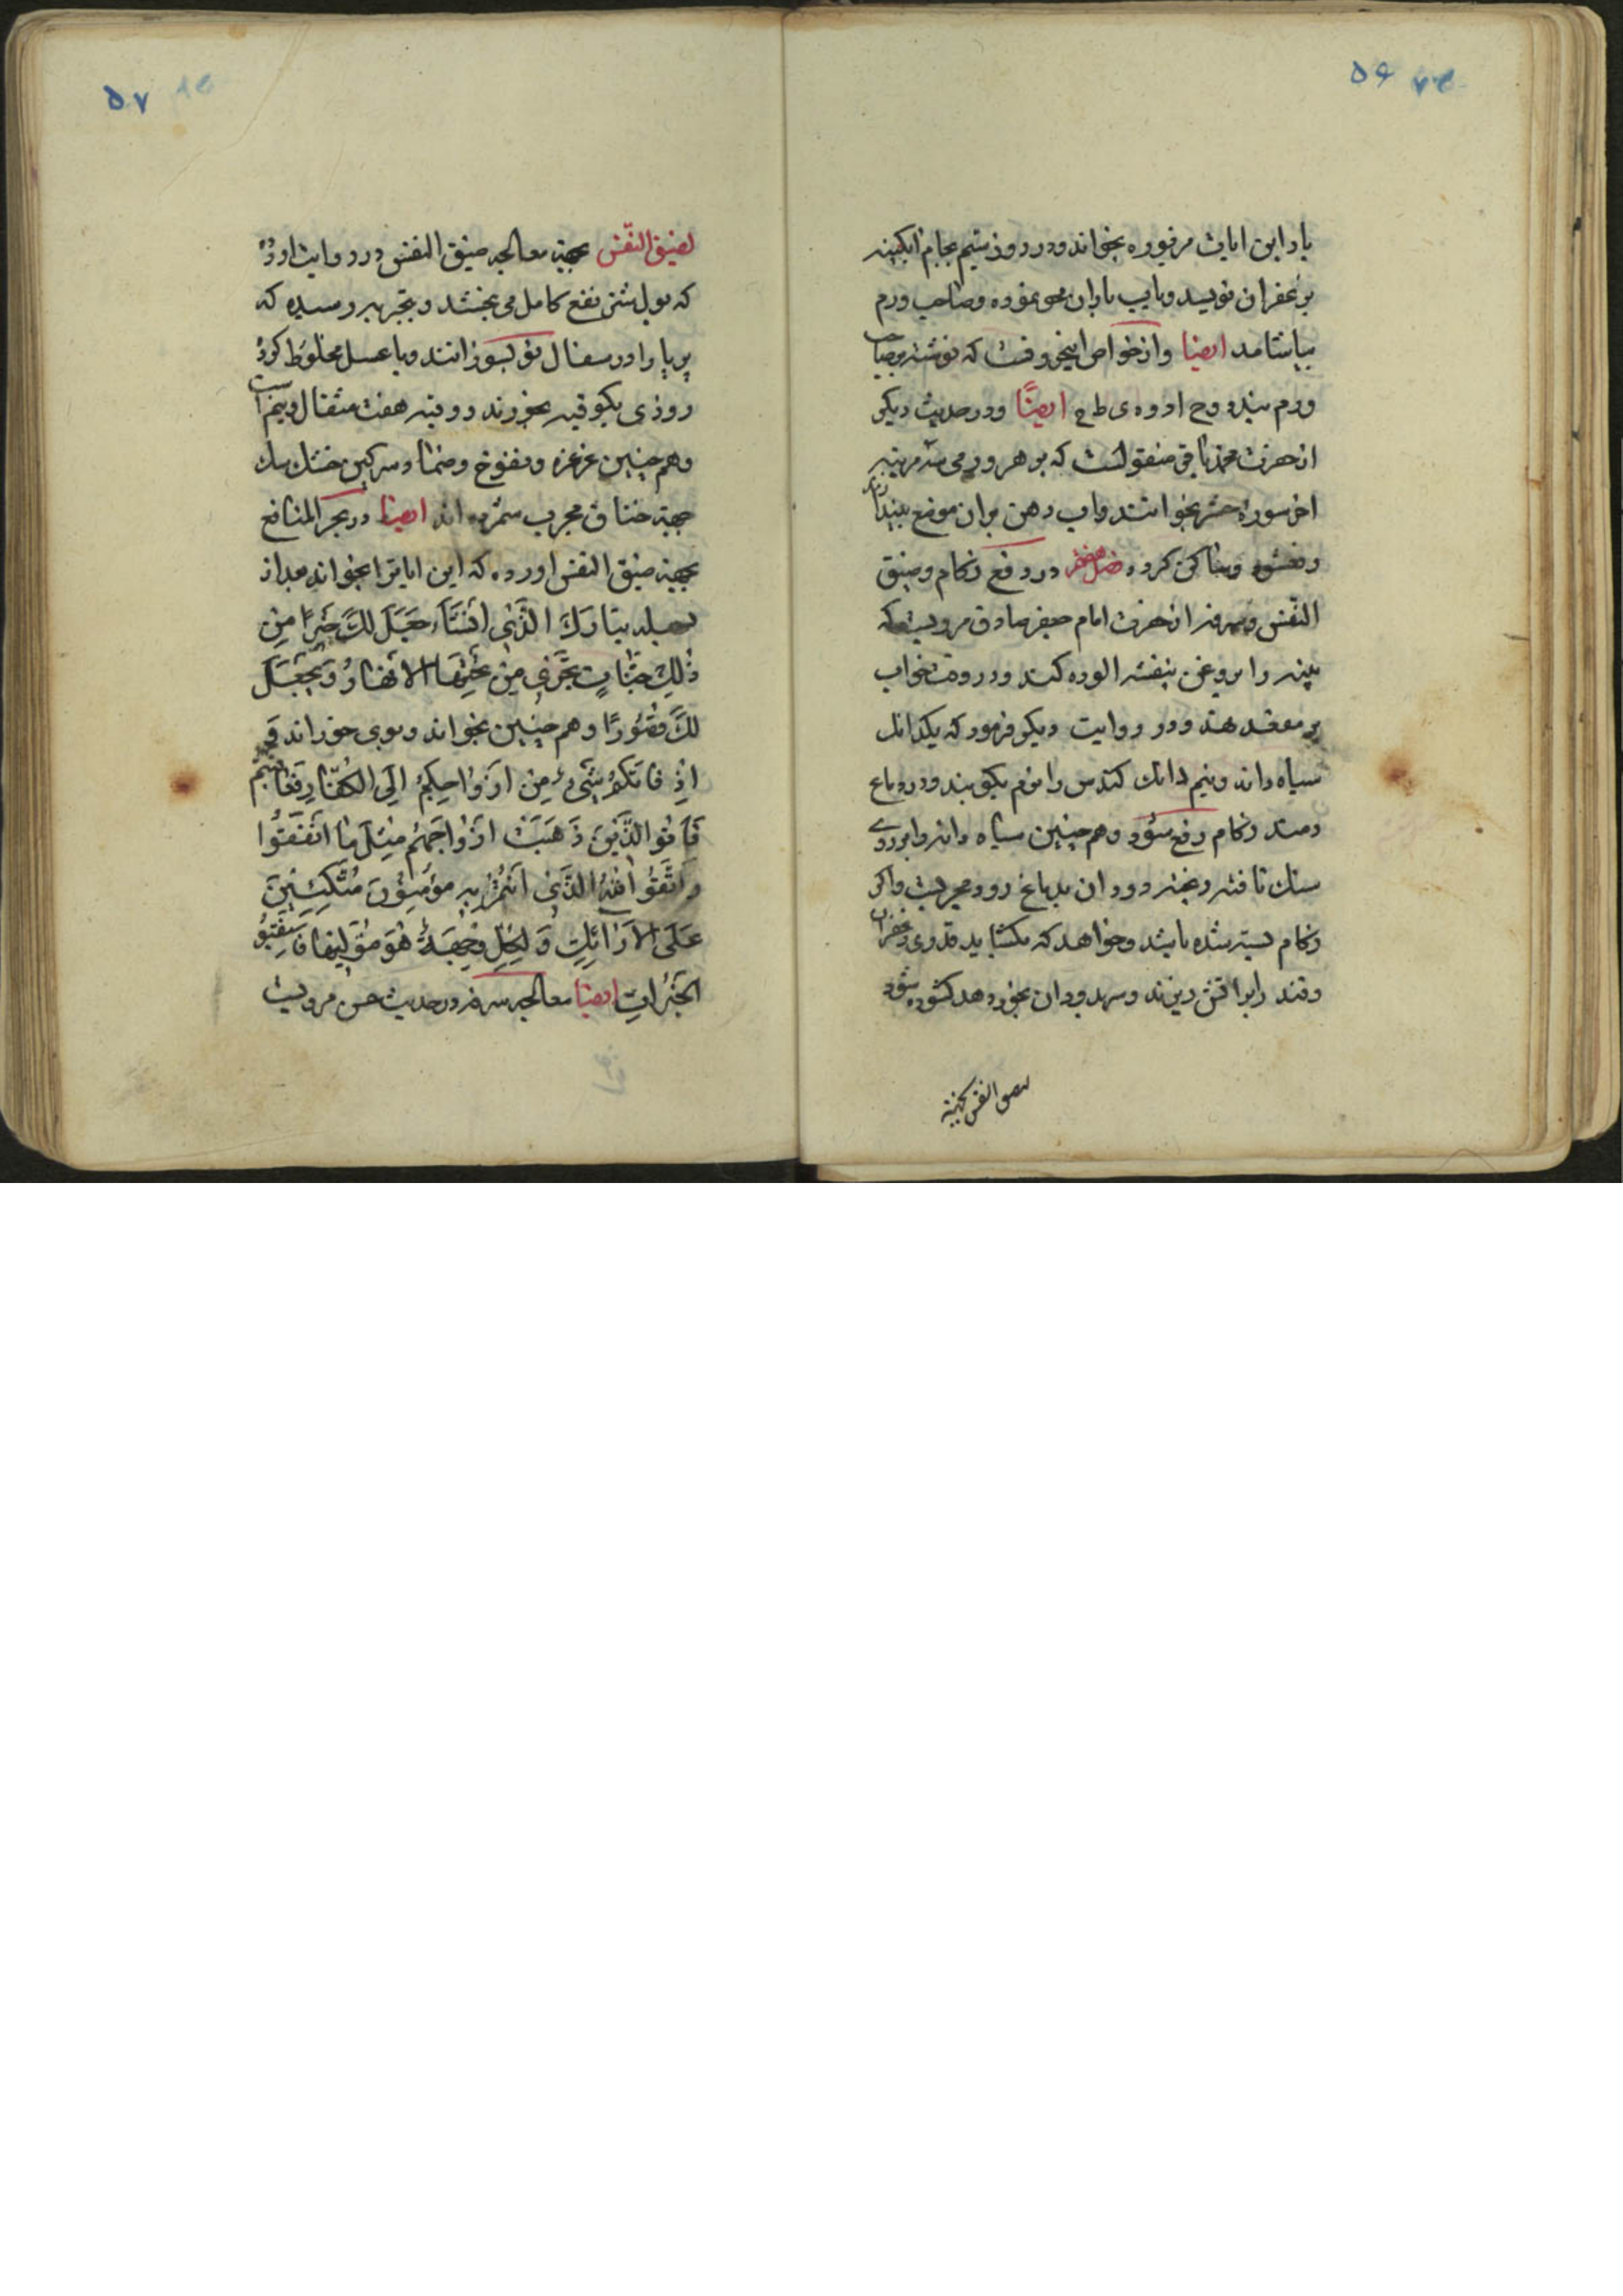 ۵۶
بار این ایات مزبوره بخواند و در روز سیم بجام ابکینه
بزعفران نویسد و باب باران محو نموده و صاحب ورم
بیاشامد ایضا و از خواص این حروفست که نوشته و صاحب
ورم بندد و ح ا و و ه ی ط ح ایضاً و در حدیث دیکر
از حضرت محمد باقر منقولست که بر هر ورمی سه مرتبه
اخر سوره حشر بخوانند و اب دهن بران موضع بیندازند
رفع شود و ساکن کردد فصل در دفع زکام و ضیق
النفس و سرفه از حضرت امام جعفر صادق مرویست که
پنبه را بروغن بنفشه الوده کند و در وقت خواب
بر مقعد نهند و در روایت دیکر فرمود که یکدانک
سیاه دانه و نیم دانک کندس را نرم بکوبند و در دماغ
دمند زکام رفع شود و هم چنین سیاه دانه را بر روی
سنک تافته ریخته دود ان بدماغ رود مجربست و اکر
زکام بسته شده باشد و خواهد که بکشاید قدری زعفران
و قند را بر اتش ریزند و سر بدود ان بخور دهد کشوده شود
۵۷
لضیق النفس بجهة معالجه ضیق النفس در روایت اورده
که بول شتر نفع کامل می بخشد و بتجربه رسیده که
را در سفال نو بسوزانند و با عسل مخلوط کرده
روزی یکوقیه بخورند و وقیه هفت مثقال و نیم است
و هم چنین غرغره و نفوخ و ضماد سرکین خشک سک
جهة خناق مجرب شمرده اند ایضا در بحر المنافع
بجهة ضیق النفس اورده که این ایات را بخواند بعد از
بسمله تبارَكَ الذَّی اِنْشَآءَ جَعَلَ لَكَ خَیراً مِنْ
ذٰلِكَ جَنّاتٍ تَجْری مِنْ تَحْتِهَا الاَنْهارُ وَ یَجْعَلَ
لَكَ قُصُورًا و هم چنین بخواند و بوی خوراند
فاتَكُمْ شَیْءٌ مِنْ اَزْواجِكُمْ اِلَی الكُفّارِ فَعاقَبْتُمْ
فَآتُوا الَّذینَ ذَهَبَتْ اَزْواجُهُمْ مِثْلَ ما اَنْفَقُوا
وَ اتَّقُوا اللهَ الَّذی اَنْتُمْ بِهِ مُؤمِنُونَ مُتَّكِئینَ
عَلَی الاَرائِكِ وَ لِكُلٍّ وِجْهَةٌ هُوَ مُوَلّیها فَاسْتَبِقُوا
الخَیْراتِ ایضا معالجه سرفه در حدیث حسن مرویست